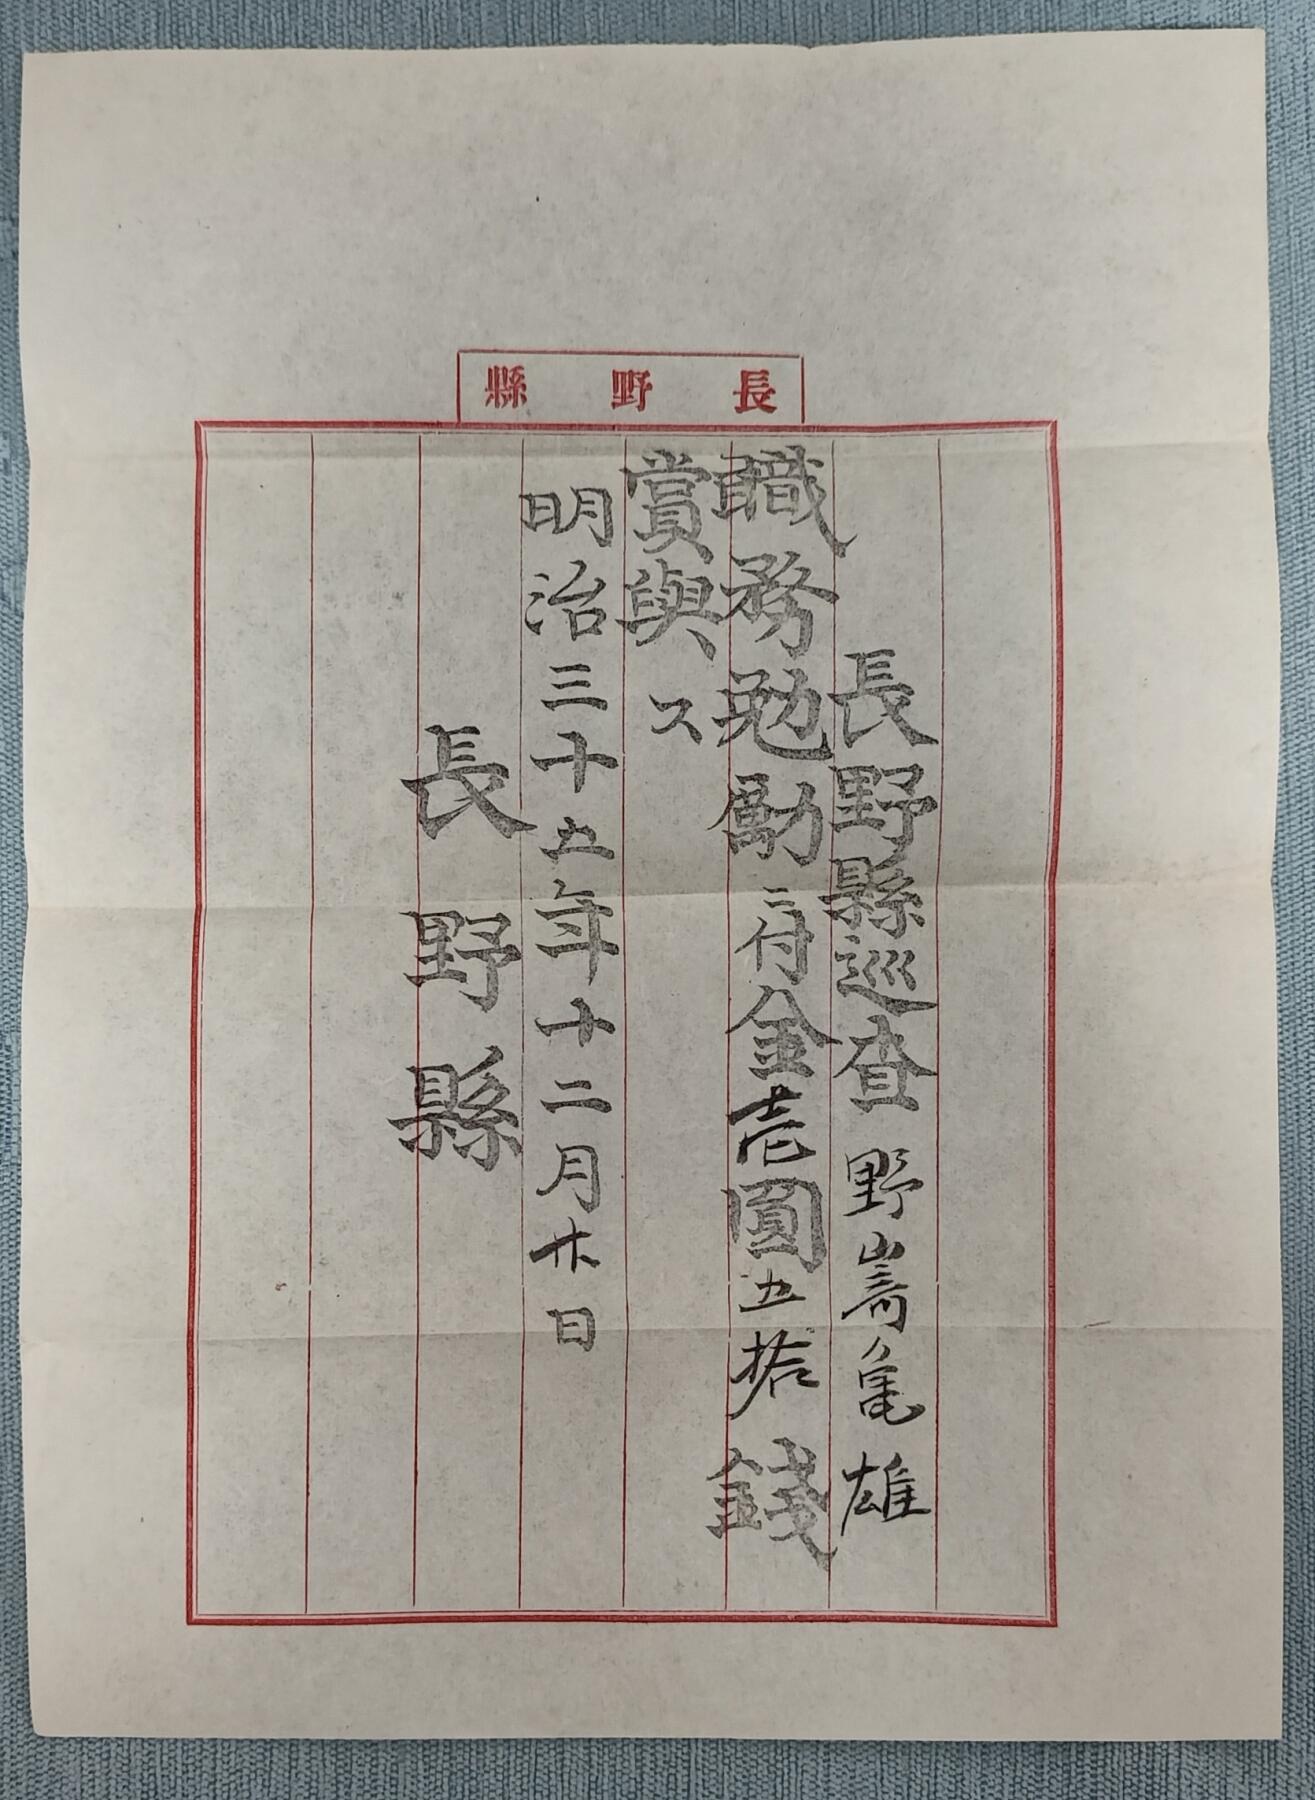 長野縣
長野縣巡査 野嵜亀雄
職務勉勵ニ付金壱圓五拾錢
賞與ス
明治三十五年十二月廿日
長野縣